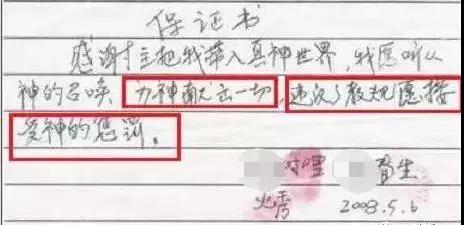 保证书
感谢主把我带入真神世界,我愿听从
神的召唤 为神献出一切,违犯了教规愿接
受神的惩罚。
育生
2008.5.6